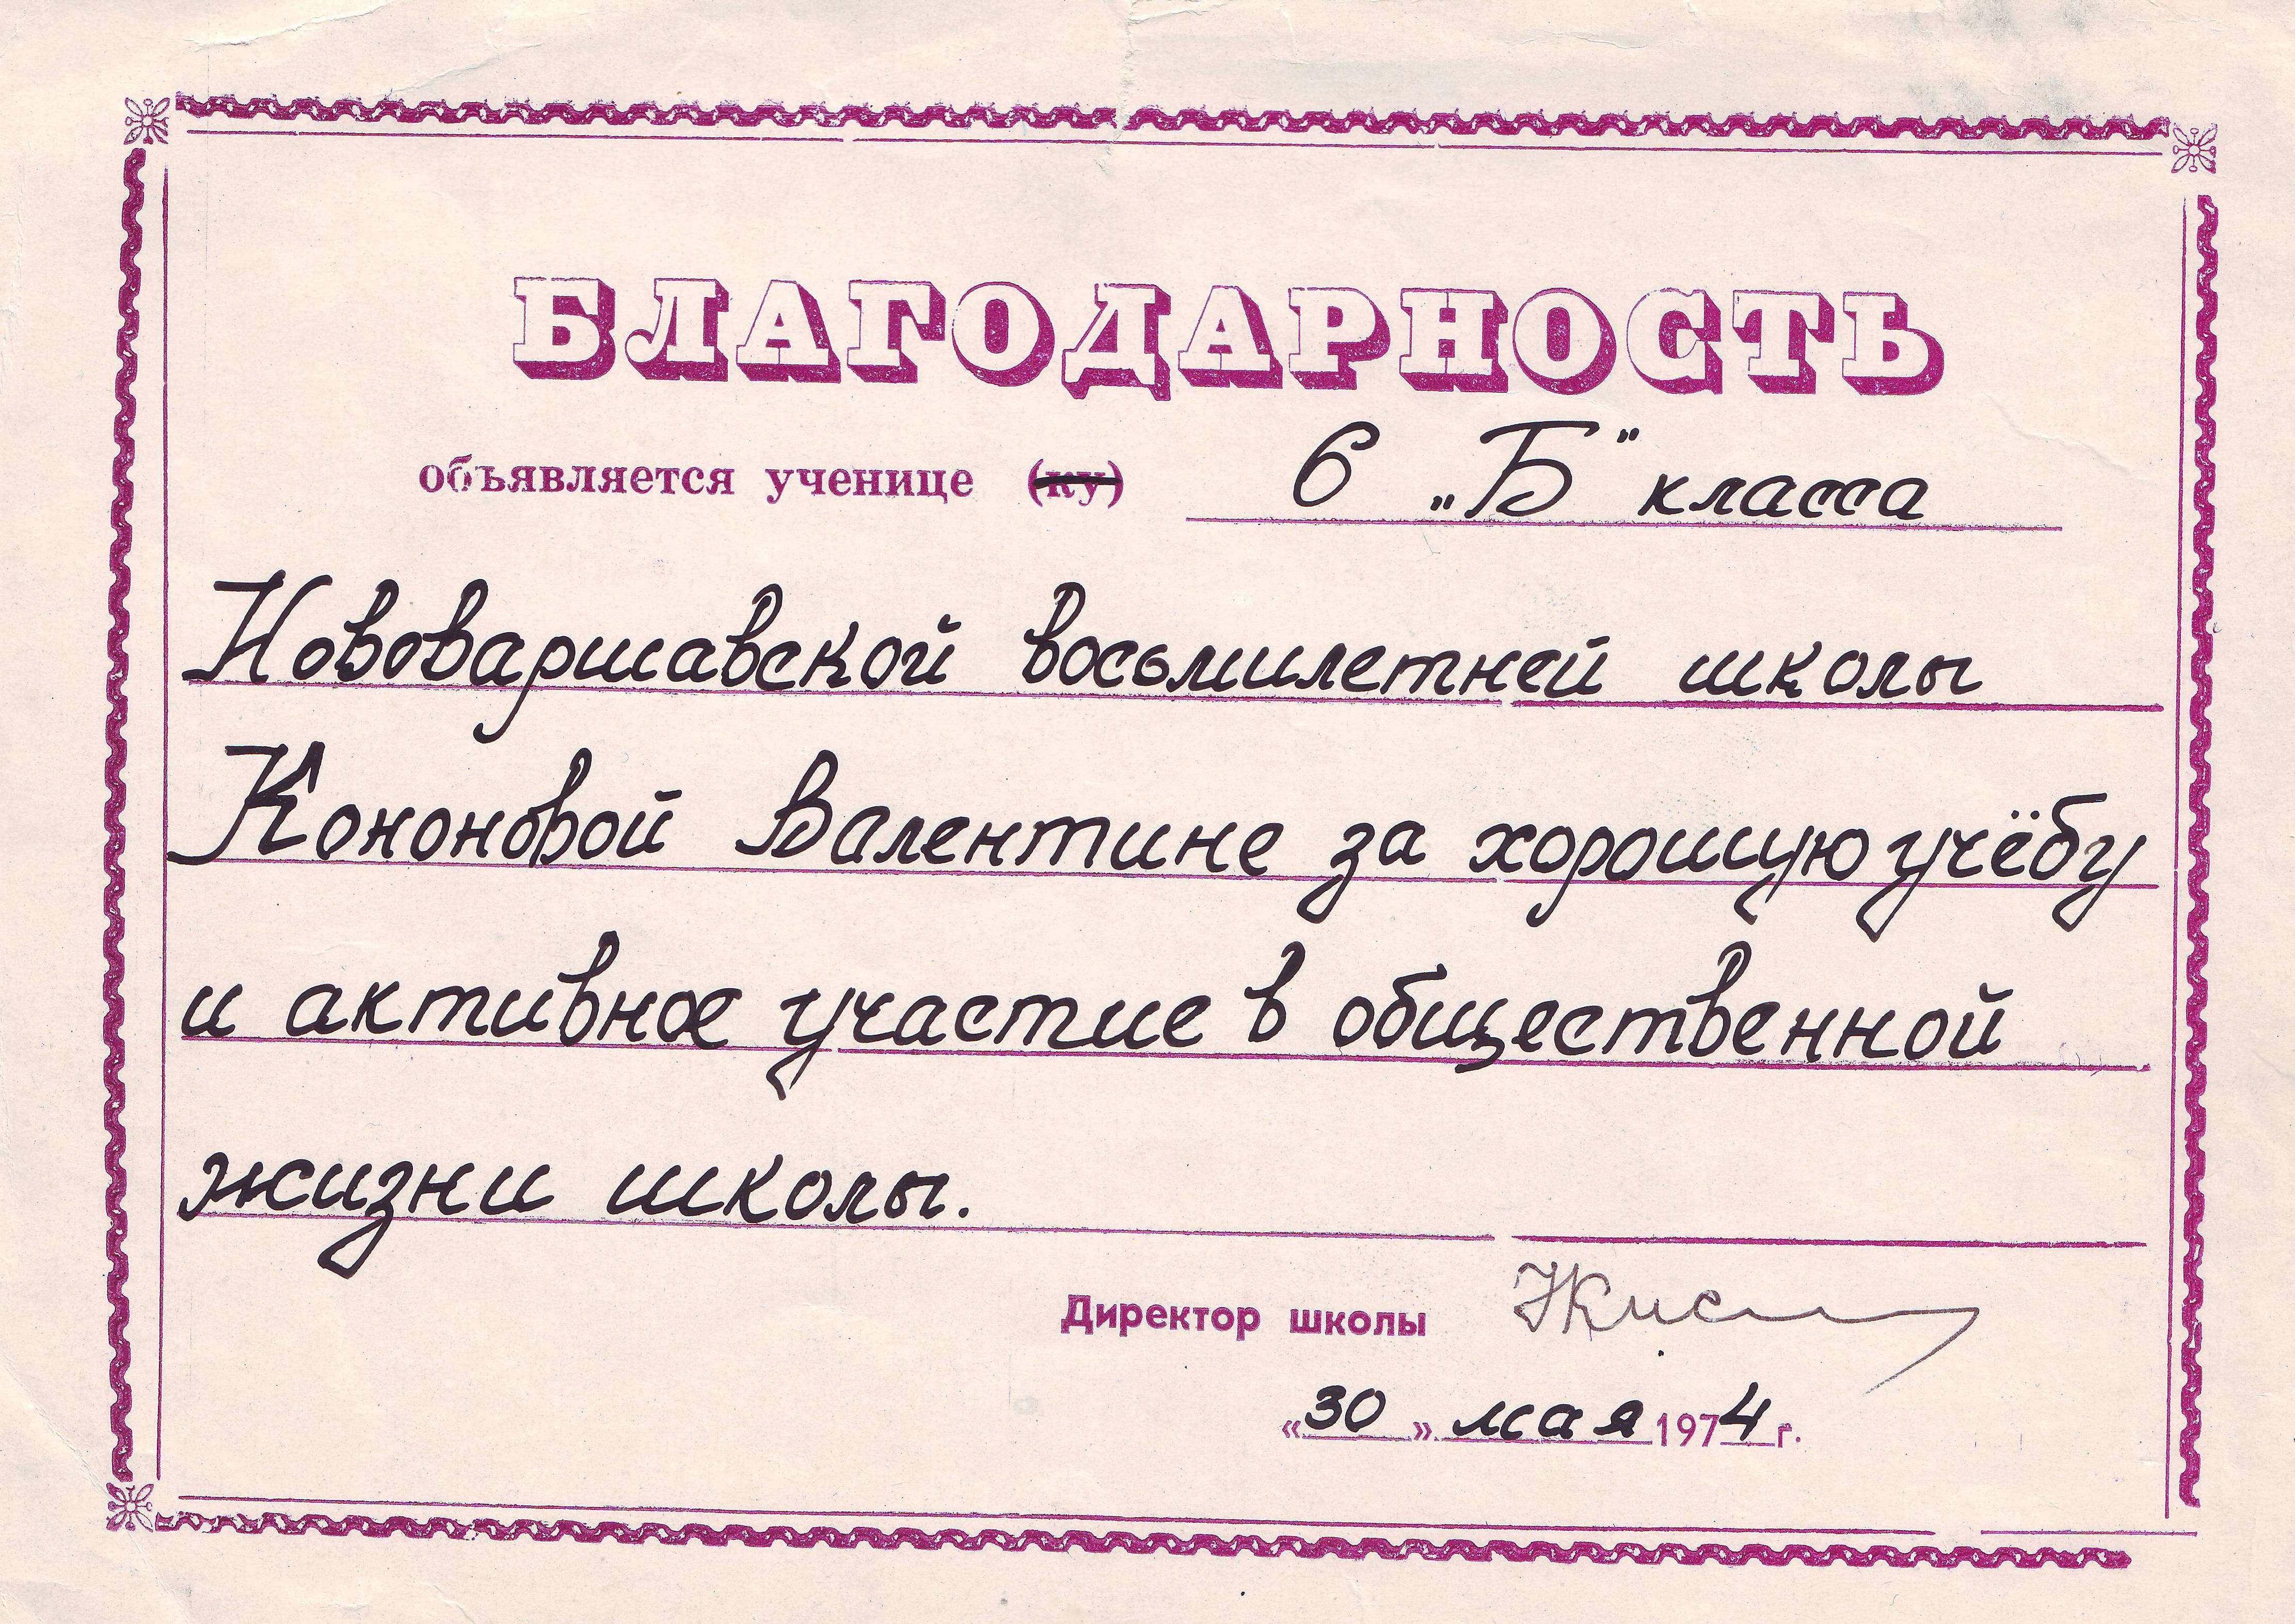 БЛАГОДАРНОСТЬ
объявляется ученице (ку) 6 „Б" класса
Нововаршавской восьмилетней школы
Кононовой Валентине за хорошую учёбу
и активное участие в общественной
жизни школы.
Директор школы
«30» мая 1974 г.